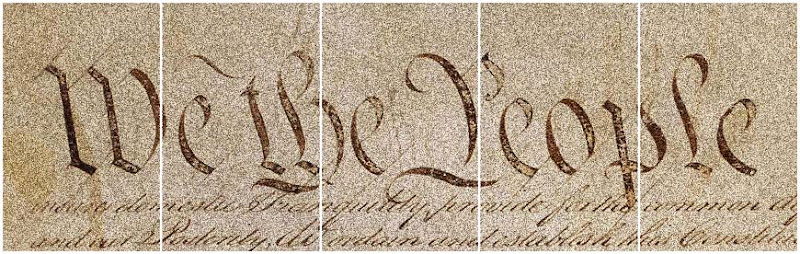 We The People
insure domestic Tranquility, provide for the common
and our Posterity, do ordain and establish this